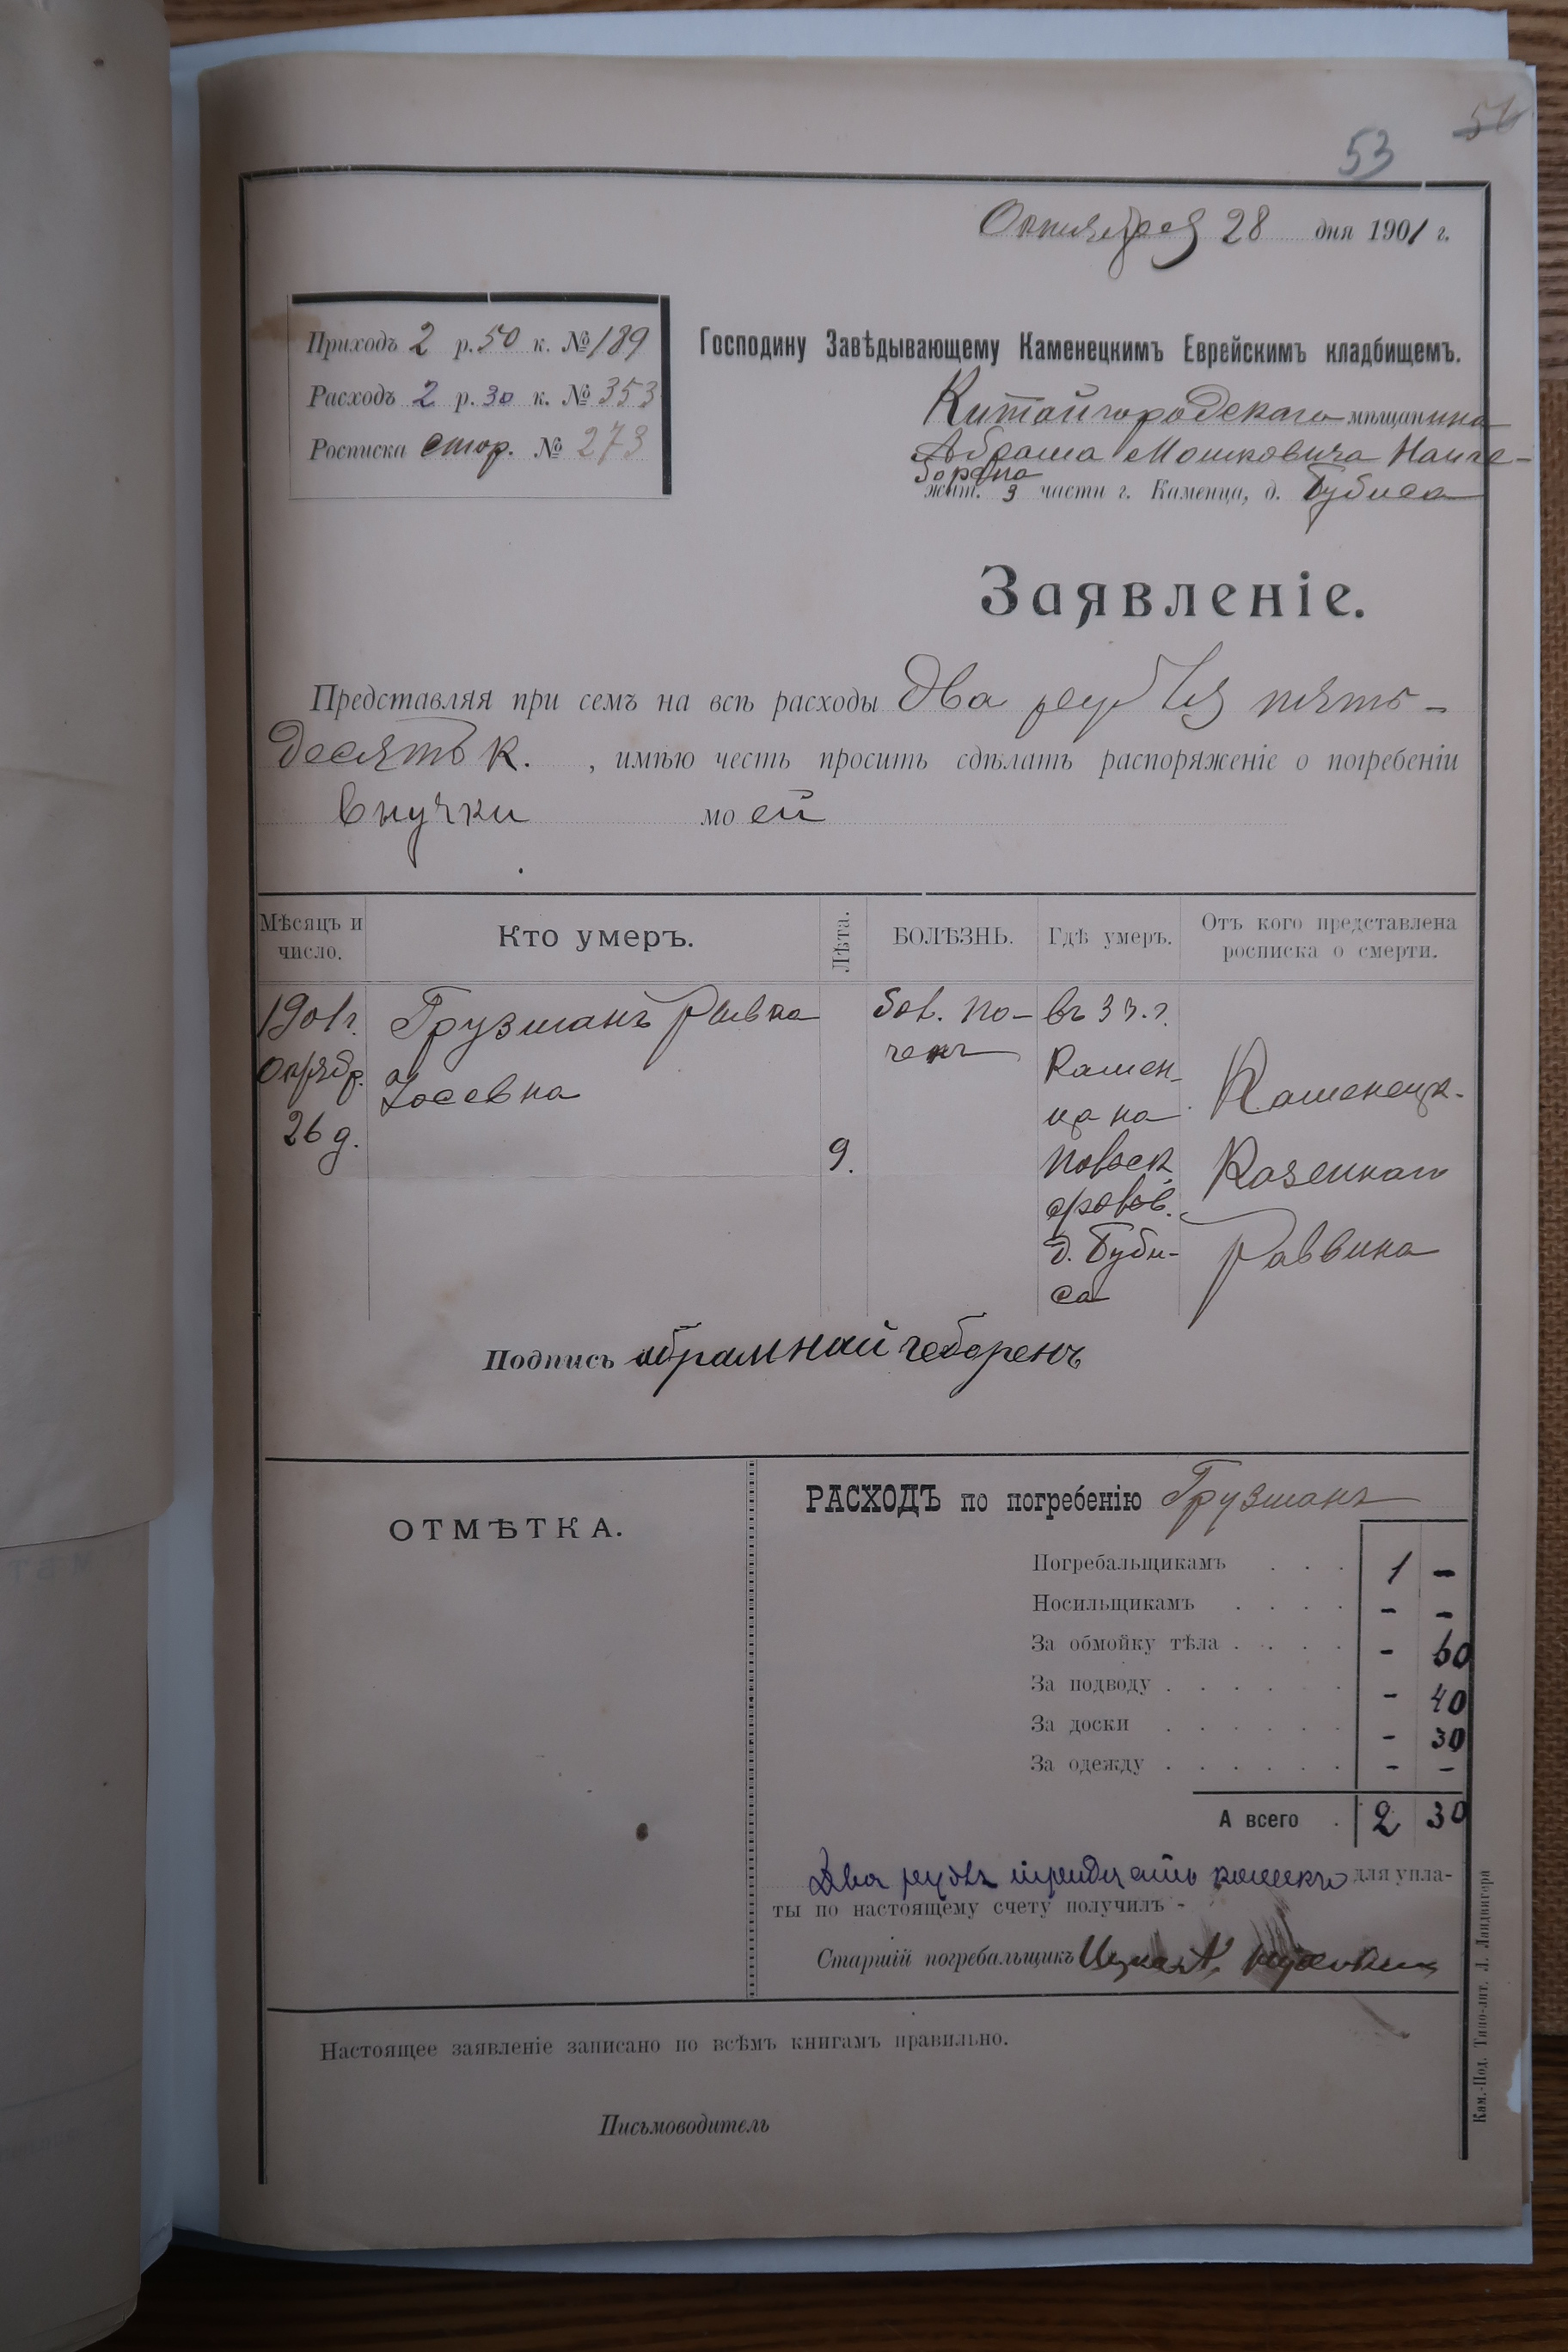 54
53
Октября 28 дня 1901 г.
Приходъ 2 р. 50 к. № 189
Расходъ 2 р. 30 к. № 353
Росписка стор. № 273
Господину Завѣдывающему Каменецкимъ Еврейскимъ кладбищемъ.
Китайгородскаго мѣщанина
Абрама Мошковича Найге-
борена
жит. 3 части г. Каменца, д. Бубиса
Заявленіе.
Представляя при семъ на всѣ расходы Два рубля пять-
десятъ к. , имѣю честь просить сдѣлать распоряженіе о погребеніи
внучки моей
Мѣсяцъ и число.
Кто умеръ.
Лѣта.
БОЛѢЗНЬ.
Гдѣ умеръ.
Отъ кого представлена росписка о смерти.
1901 г.
Октябр.
26 д.
Грузманъ Ривка
Іосевна
9.
бол. по-
чекъ
въ 3 ч. г.
Камен-
ца на
д. Буби-
са
Каменецк.
Казеннаго
Раввина
Подпись абрам най геборенъ
ОТМѢТКА.
РАСХОДЪ по погребенію Грузманъ
Погребальщикамъ . . . 1 -
Носильщикамъ . . . . - -
За обмойку тѣла . . . . - 60
За подводу . . . . . . - 40
За доски . . . . . . - 30
За одежду . . . . . . - -
А всего . 2 30
Два рубл тридцать копѣекъ для упла-
ты по настоящему счету получилъ -
Старшій погребальщикъ
Настоящее заявленіе записано по всѣмъ книгамъ правильно.
Письмоводитель
Кам.-Под. Типо-лит. Л. Ландвигера